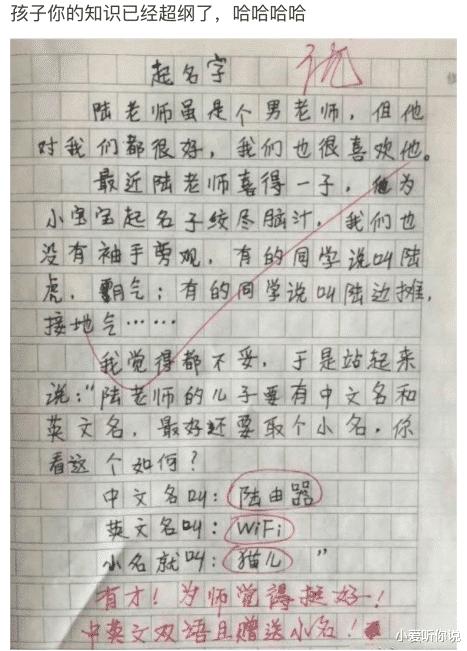 孩子你的知识已经超纲了，哈哈哈哈
起名字
优
陆老师虽是个男老师，但他
对我们都很好，我们也很喜欢他。
最近陆老师喜得一子，他为
小宝宝起名子绞尽脑汁，我们也
没有袖手剪观，有的同学说叫陆
虎，霸气；有的同学说叫陆边摊，
接地气……
我觉得都不妥，于是站起来
说：“陆老师的儿子要有中文名和
英文名，最好还要取个小名，你
看这个如何？
中文名叫：陆由器
英文名叫：WiFi
小名就叫：猫儿”
有才！为师觉得挺好！
中英文双语且赠送小名！
小爱听你说